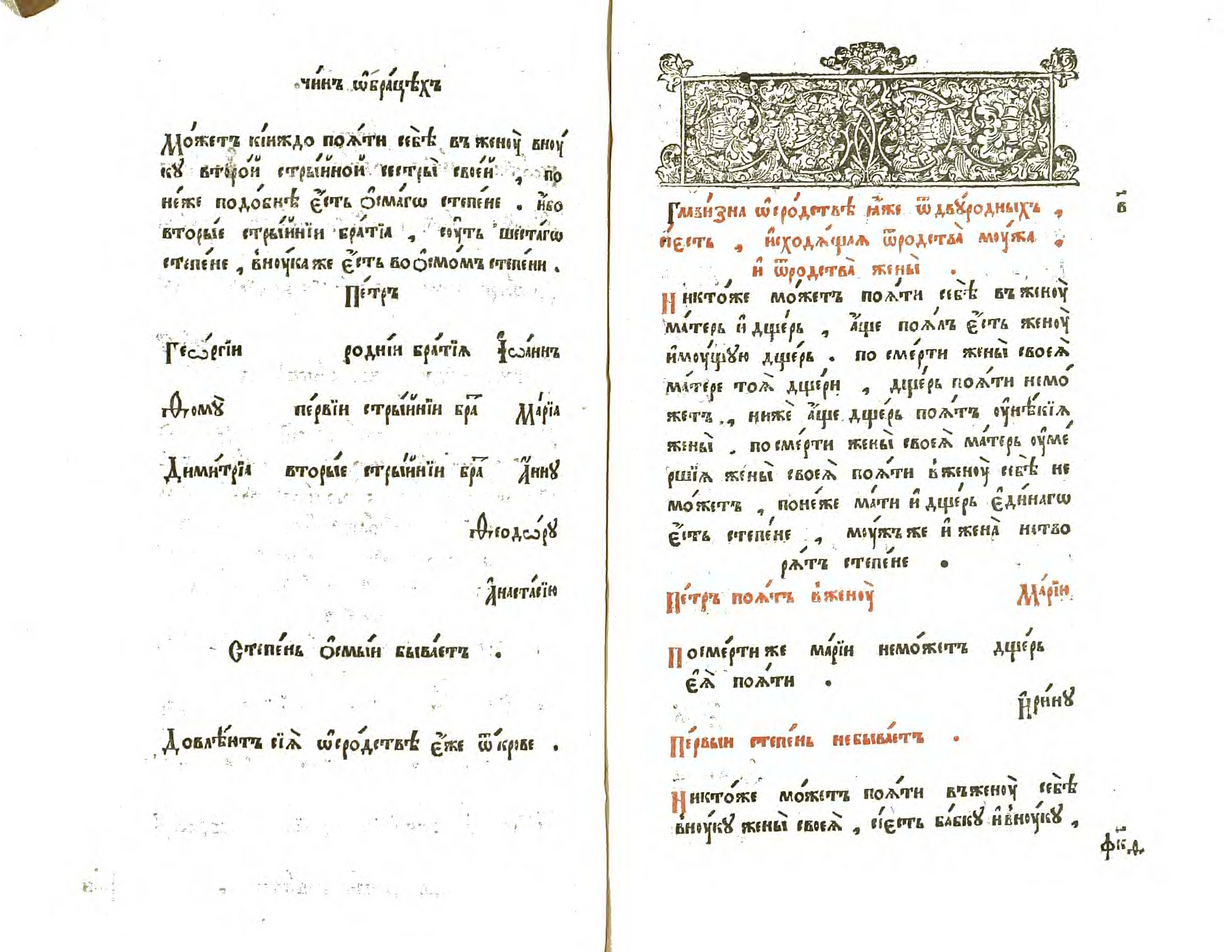 чи́нъ ѡ҆бра́цѣхъ
Мо́жетъ кі́иждо поѧ́ти себѣ̀ въ женꙋ̀ внꙋ́
кꙋ второ́й стры́йной сестры̀ свое́й , по
не́же подо́бнѣ є҆́сть ѻ҆сма́гѡ степе́не . и҆́бо
вторы́е стры́йнїи бра́тїа , сꙋ́ть шеста́гѡ
степе́не , внꙋ́ка же є҆́сть во ѻ҆смо́мъ степени .
Пе́тръ
Геѡ́ргїи родні́и бра́тїѧ І҆ѡа́ннъ
Ѳомꙋ̀ пе́рвїи стры́йнїи бра̑ Ма́рїа
Дими́трїа вторы́е стры́йнїи бра̑ А҆́ннꙋ
Ѳеодѡ́рꙋ
А҆наста́сїю
Степе́нь ѻ҆смы́и быва́етъ .
Довлѣ́итъ сїѧ̀ ѡ҆сро́дствѣ є҆́же ѿ кро́ве .
Глави́зна ѡ҆сро́дствѣ ꙗ҆́же ѿ двꙋро́дныхъ ,
сїе́сть , и҆сходѧ́щаѧ ѿ ро́дства мꙋ́жа ,
и҆ ѿ ро́дства жены̀ .
в҃
Никто́же мо́жетъ поѧ́ти себѣ̀ въ женꙋ̀
ма́терь и҆ дще́рь , а҆́ще поѧ́лъ є҆́сть женꙋ̀
и҆мꙋ́щꙋю дще́рь . по сме́рти жены̀ своеѧ̀
ма́тере тоѧ̀ дще́ри , дще́рь поѧ́ти немо́
жетъ , нижѐ а҆́ще дще́рь поѧ́тъ ѹ҆нѣ́кїѧ
жены̀ . по сме́рти жены̀ своеѧ̀ ма́терь ѹ҆ме́
ршїѧ жены̀ своеѧ̀ поѧ́ти в женꙋ̀ себѣ̀ не
мо́жетъ , поне́же ма́ти и҆ дще́рь є҆ди́нагѡ
є҆́сть степе́не , мꙋ́жъ же и҆ жена̀ нетво
рѧ́тъ степе́не .
Пе́тръ поѧ́тъ в женꙋ̀ Ма́рїю
По сме́рти же ма́рїи немо́жетъ дще́рь
є҆ѧ̀ поѧ́ти .
И҆ри́нꙋ
Пе́рвыи степе́нь небыва́етъ .
Никто́же мо́жетъ поѧ́ти въ женꙋ̀ себѣ̀
внꙋ́кꙋ жены̀ своеѧ̀ , сїе́сть ба́бкꙋ и҆ внꙋ́кꙋ ,
фк҃д